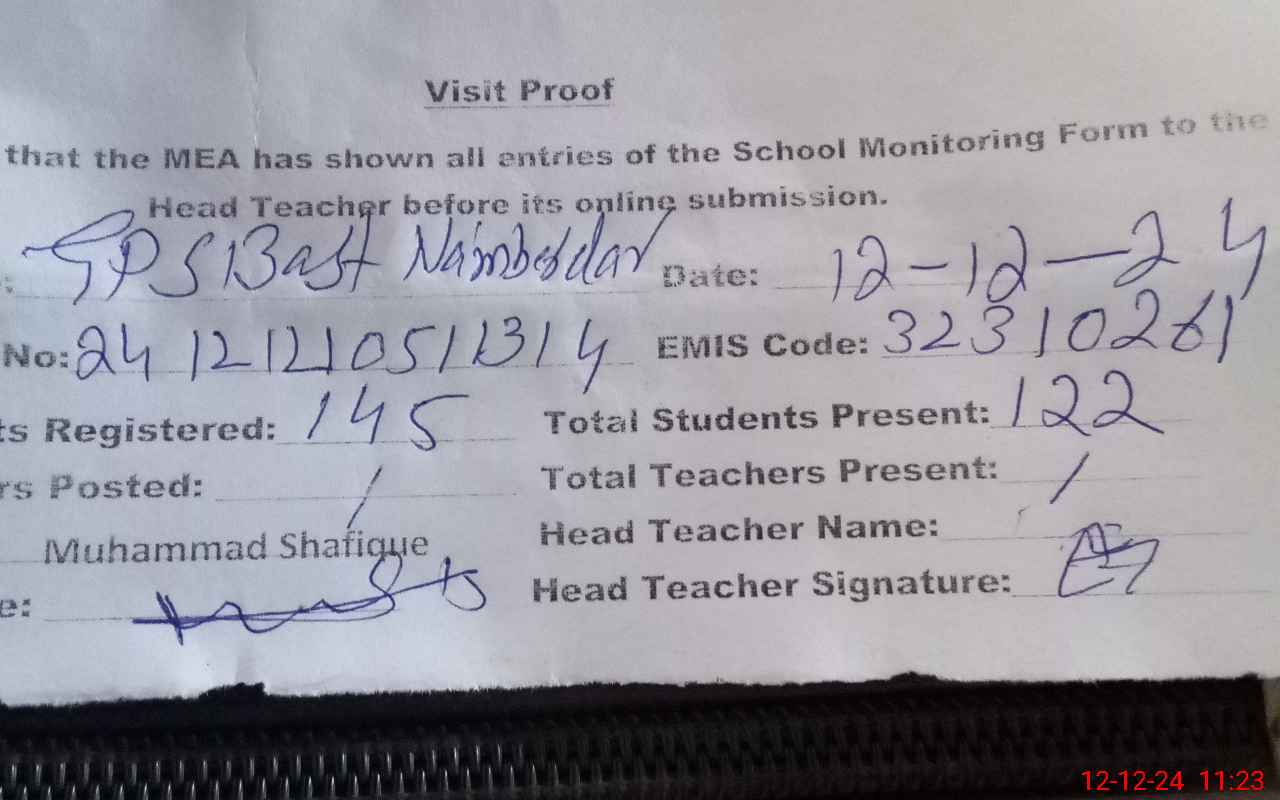 Visit Proof
that the MEA has shown all entries of the School Monitoring Form to the
Head Teacher before its online submission.
: GPS Bast Namberdar Date: 12-12-24
No: 24 12121051314 EMIS Code: 32310261
ts Registered: 145 Total Students Present: 122
rs Posted: 1 Total Teachers Present: 1
Muhammad Shafique Head Teacher Name:
e: Head Teacher Signature:
12-12-24 11:23